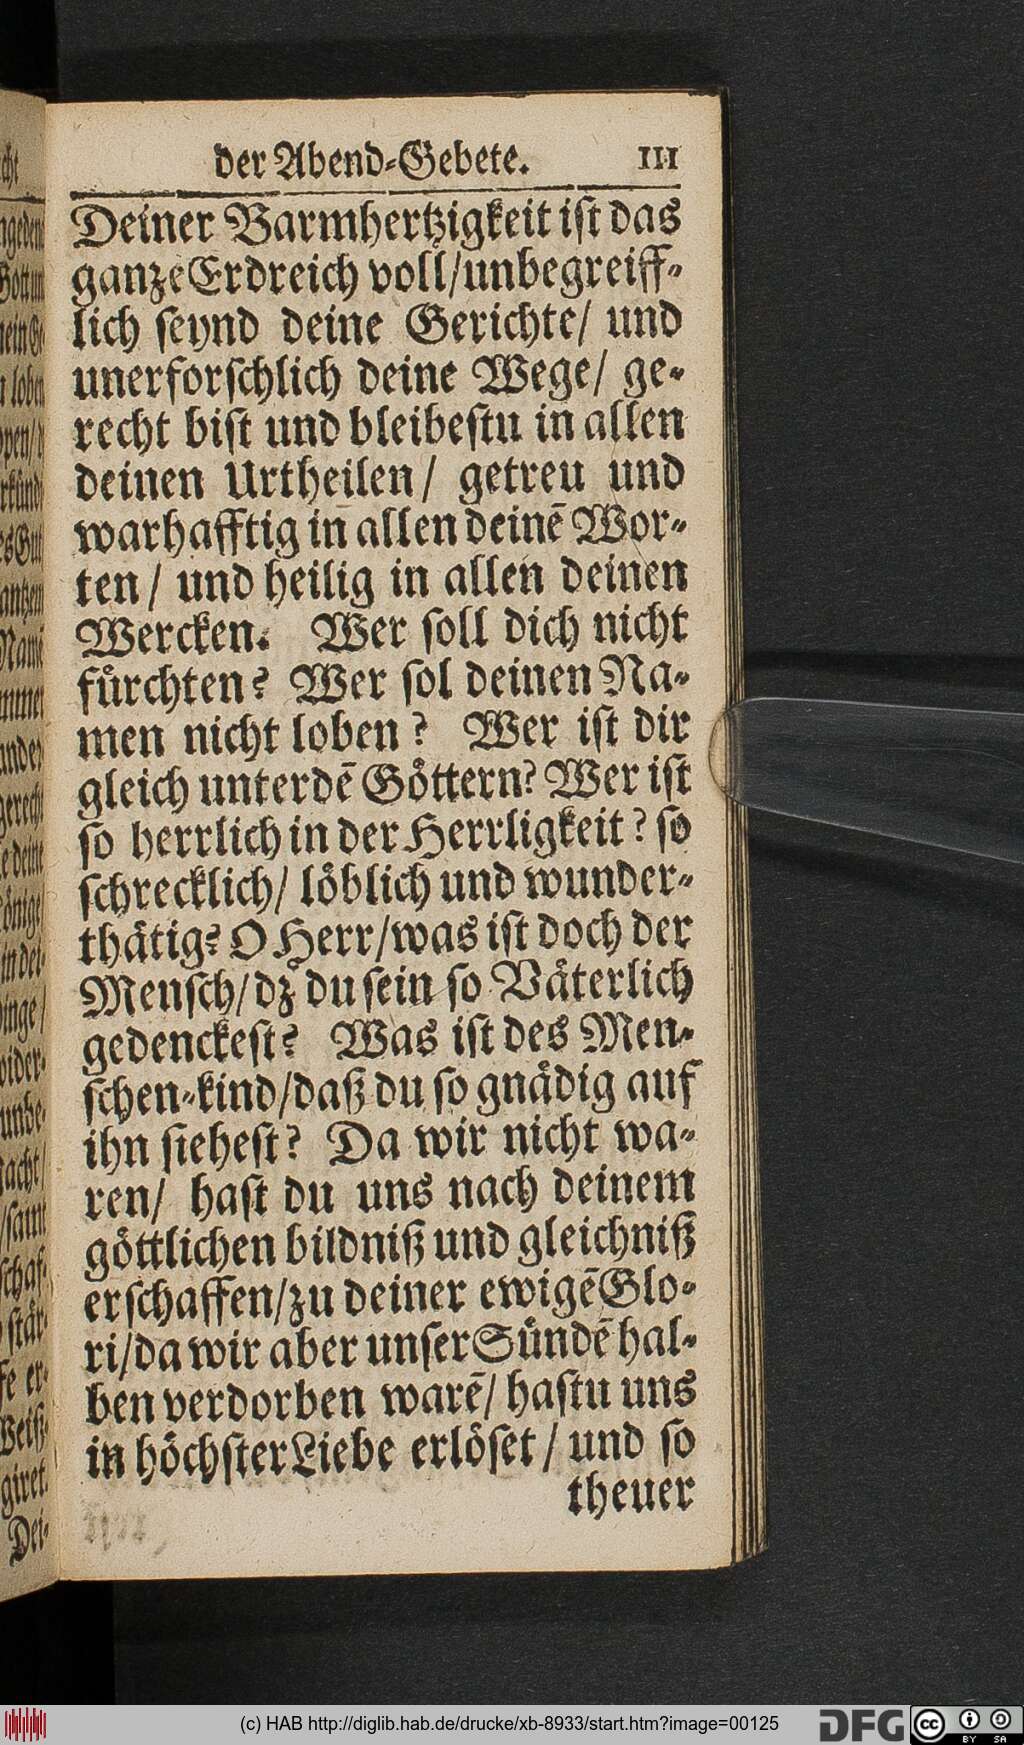 der Abend-Gebete. 111
Deiner Barmhertzigkeit ist das
ganze Erdreich voll/unbegreiff-
lich seynd deine Gerichte/ und
unerforschlich deine Wege/ ge-
recht bist und bleibestu in allen
deinen Urtheilen/ getreu und
warhafftig in allen deinē Wor-
ten/ und heilig in allen deinen
Wercken. Wer soll dich nicht
fuͤrchten? Wer sol deinen Na-
men nicht loben? Wer ist dir
gleich unter dē Goͤttern? Wer ist
so herrlich in der Herrligkeit? so
schrecklich/ loͤblich und wunder-
thaͤtig? O Herr/was ist doch der
Mensch/dz du sein so Vaͤterlich
gedenckest? Was ist des Men-
schen-kind/daß du so gnaͤdig auf
ihn siehest? Da wir nicht wa-
ren/ hast du uns nach deinem
goͤttlichen bildniß und gleichniß
erschaffen/zu deiner ewigē Glo-
ri/da wir aber unser Suͤndē hal-
ben verdorben warē/ hastu uns
in hoͤchster Liebe erloͤset/ und so
theuer
(c) HAB http://diglib.hab.de/drucke/xb-8933/start.htm?image=00125
DFG cc BY SA